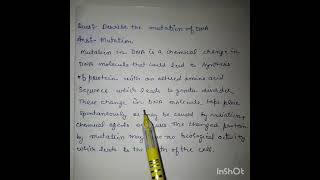 Ques:- Describe the mutation of DNA
Ans:- Mutation
Mutation in DNA is a chemical change in
DNA molecule that could lead to synthesis
of protein with an altered amino acid
Sequence which leads to genetic disorder.
These change in DNA molecule take place
Spontaneously or may be caused by radiation,
Chemical agents or viruses. The changed protein
by mutation may have no biological activity
which leads to the death of the cell.
InShOt